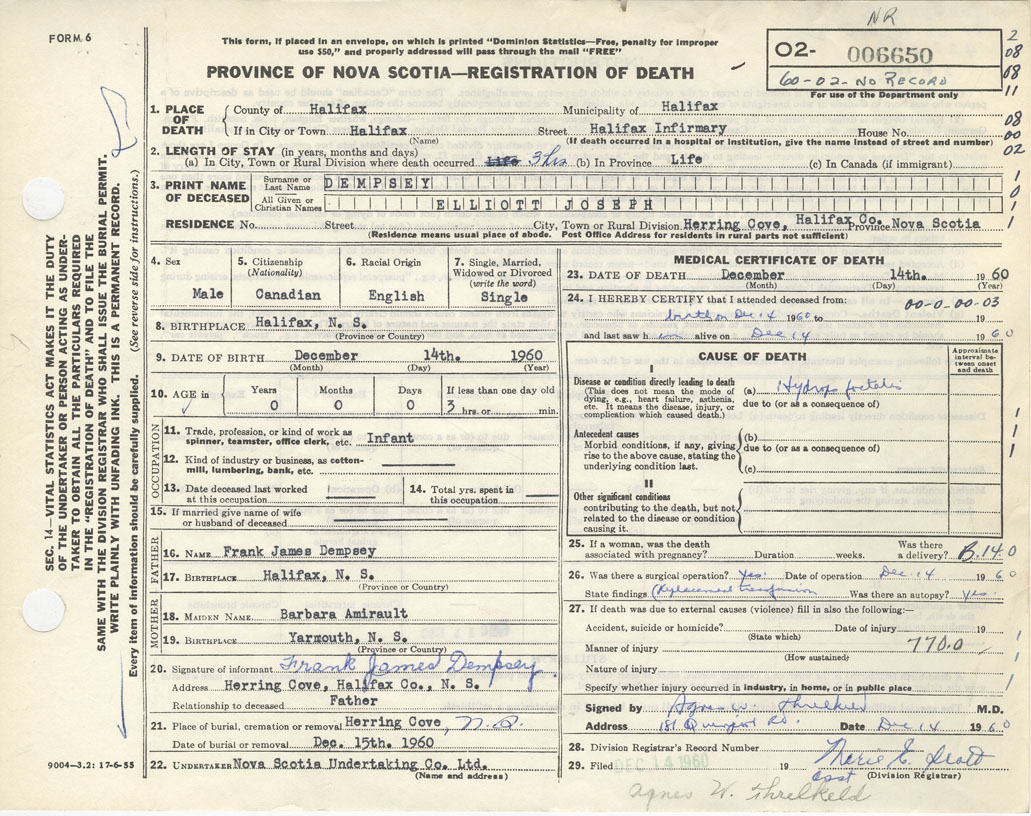 NR
FORM 6
This form, if placed in an envelope, on which is printed "Dominion Statistics—Free, penalty for improper
use $50," and properly addressed will pass through the mail "FREE"
02- 006650
60-02-No Record
For use of the Department only
2
08
08
11
08
00
02
PROVINCE OF NOVA SCOTIA—REGISTRATION OF DEATH
1. PLACE OF DEATH
County of Halifax Municipality of Halifax
If in City or Town Halifax Street Halifax Infirmary House No.
(Name) (If death occurred in a hospital or institution, give the name instead of street and number)
2. LENGTH OF STAY (in years, months and days)
(a) In City, Town or Rural Division where death occurred Life 3 hrs (b) In Province Life (c) In Canada (if immigrant)
3. PRINT NAME OF DECEASED
Surname or Last Name DEMPSEY
All Given or Christian Names ELLIOTT JOSEPH
RESIDENCE No. Street City, Town or Rural Division Herring Cove, Halifax Co. Province Nova Scotia
(Residence means usual place of abode. Post Office Address for residents in rural parts not sufficient)
4. Sex
Male
5. Citizenship
(Nationality)
Canadian
6. Racial Origin
English
7. Single, Married, Widowed or Divorced
(write the word)
Single
8. BIRTHPLACE Halifax, N. S.
(Province or Country)
9. DATE OF BIRTH December 14th. 1960
(Month) (Day) (Year)
10. AGE in
Years Months Days If less than one day old
0 0 0 3 hrs. or min.
OCCUPATION
11. Trade, profession, or kind of work as
spinner, teamster, office clerk, etc. Infant
12. Kind of industry or business, as cotton-
mill, lumbering, bank, etc.
13. Date deceased last worked
at this occupation
14. Total yrs. spent in
this occupation.
15. If married give name of wife
or husband of deceased
FATHER
16. NAME Frank James Dempsey
17. BIRTHPLACE Halifax, N. S.
(Province or Country)
MOTHER
18. MAIDEN NAME Barbara Amirault
19. BIRTHPLACE Yarmouth, N. S.
(Province or Country)
20. Signature of informant Frank James Dempsey
Address Herring Cove, Halifax Co., N. S.
Relationship to deceased Father
21. Place of burial, cremation or removal Herring Cove, N.S.
Date of burial or removal Dec. 15th. 1960
22. UNDERTAKER Nova Scotia Undertaking Co. Ltd.
(Name and address)
MEDICAL CERTIFICATE OF DEATH
23. DATE OF DEATH December 14th. 1960
(Month) (Day) (Year)
24. I HEREBY CERTIFY that I attended deceased from: 00-0.00-03
birth on Dec 14 1960 to
and last saw h im alive on Dec 14 1960
CAUSE OF DEATH
Approximate interval between onset and death
I
Disease or condition directly leading to death
(This does not mean the mode of
dying, e.g., heart failure, asthenia,
etc. It means the disease, injury, or
complication which caused death.)
(a) Hydrops foetalis
due to (or as a consequence of)
Antecedent causes
Morbid conditions, if any, giving
rise to the above cause, stating the
underlying condition last.
(b)
due to (or as a consequence of)
(c)
II
Other significant conditions
contributing to the death, but not
related to the disease or condition
causing it.
25. If a woman, was the death
associated with pregnancy? Duration weeks. Was there
a delivery? B.14.0
26. Was there a surgical operation? Yes. Date of operation Dec. 14 1960
State findings Replacement transfusion Was there an autopsy? Yes.
27. If death was due to external causes (violence) fill in also the following:—
Accident, suicide or homicide? Date of injury 19
(State which)
Manner of injury 770.0
(How sustained)
Nature of injury
Specify whether injury occurred in industry, in home, or in public place
Signed by Agnes W. Threlkeld M.D.
Address Date Dec 14 1960
28. Division Registrar's Record Number
29. Filed DEC 14 1960 19
(Division Registrar)
Agnes W. Threlkeld
9004—3.2: 17-6-55
SEC. 14—VITAL STATISTICS ACT MAKES IT THE DUTY
OF THE UNDERTAKER OR PERSON ACTING AS UNDER-
TAKER TO OBTAIN ALL THE PARTICULARS REQUIRED
IN THE "REGISTRATION OF DEATH" AND TO FILE THE
SAME WITH THE DIVISION REGISTRAR WHO SHALL ISSUE THE BURIAL PERMIT.
WRITE PLAINLY WITH UNFADING INK. THIS IS A PERMANENT RECORD.
Every item of information should be carefully supplied. (See reverse side for instructions.)